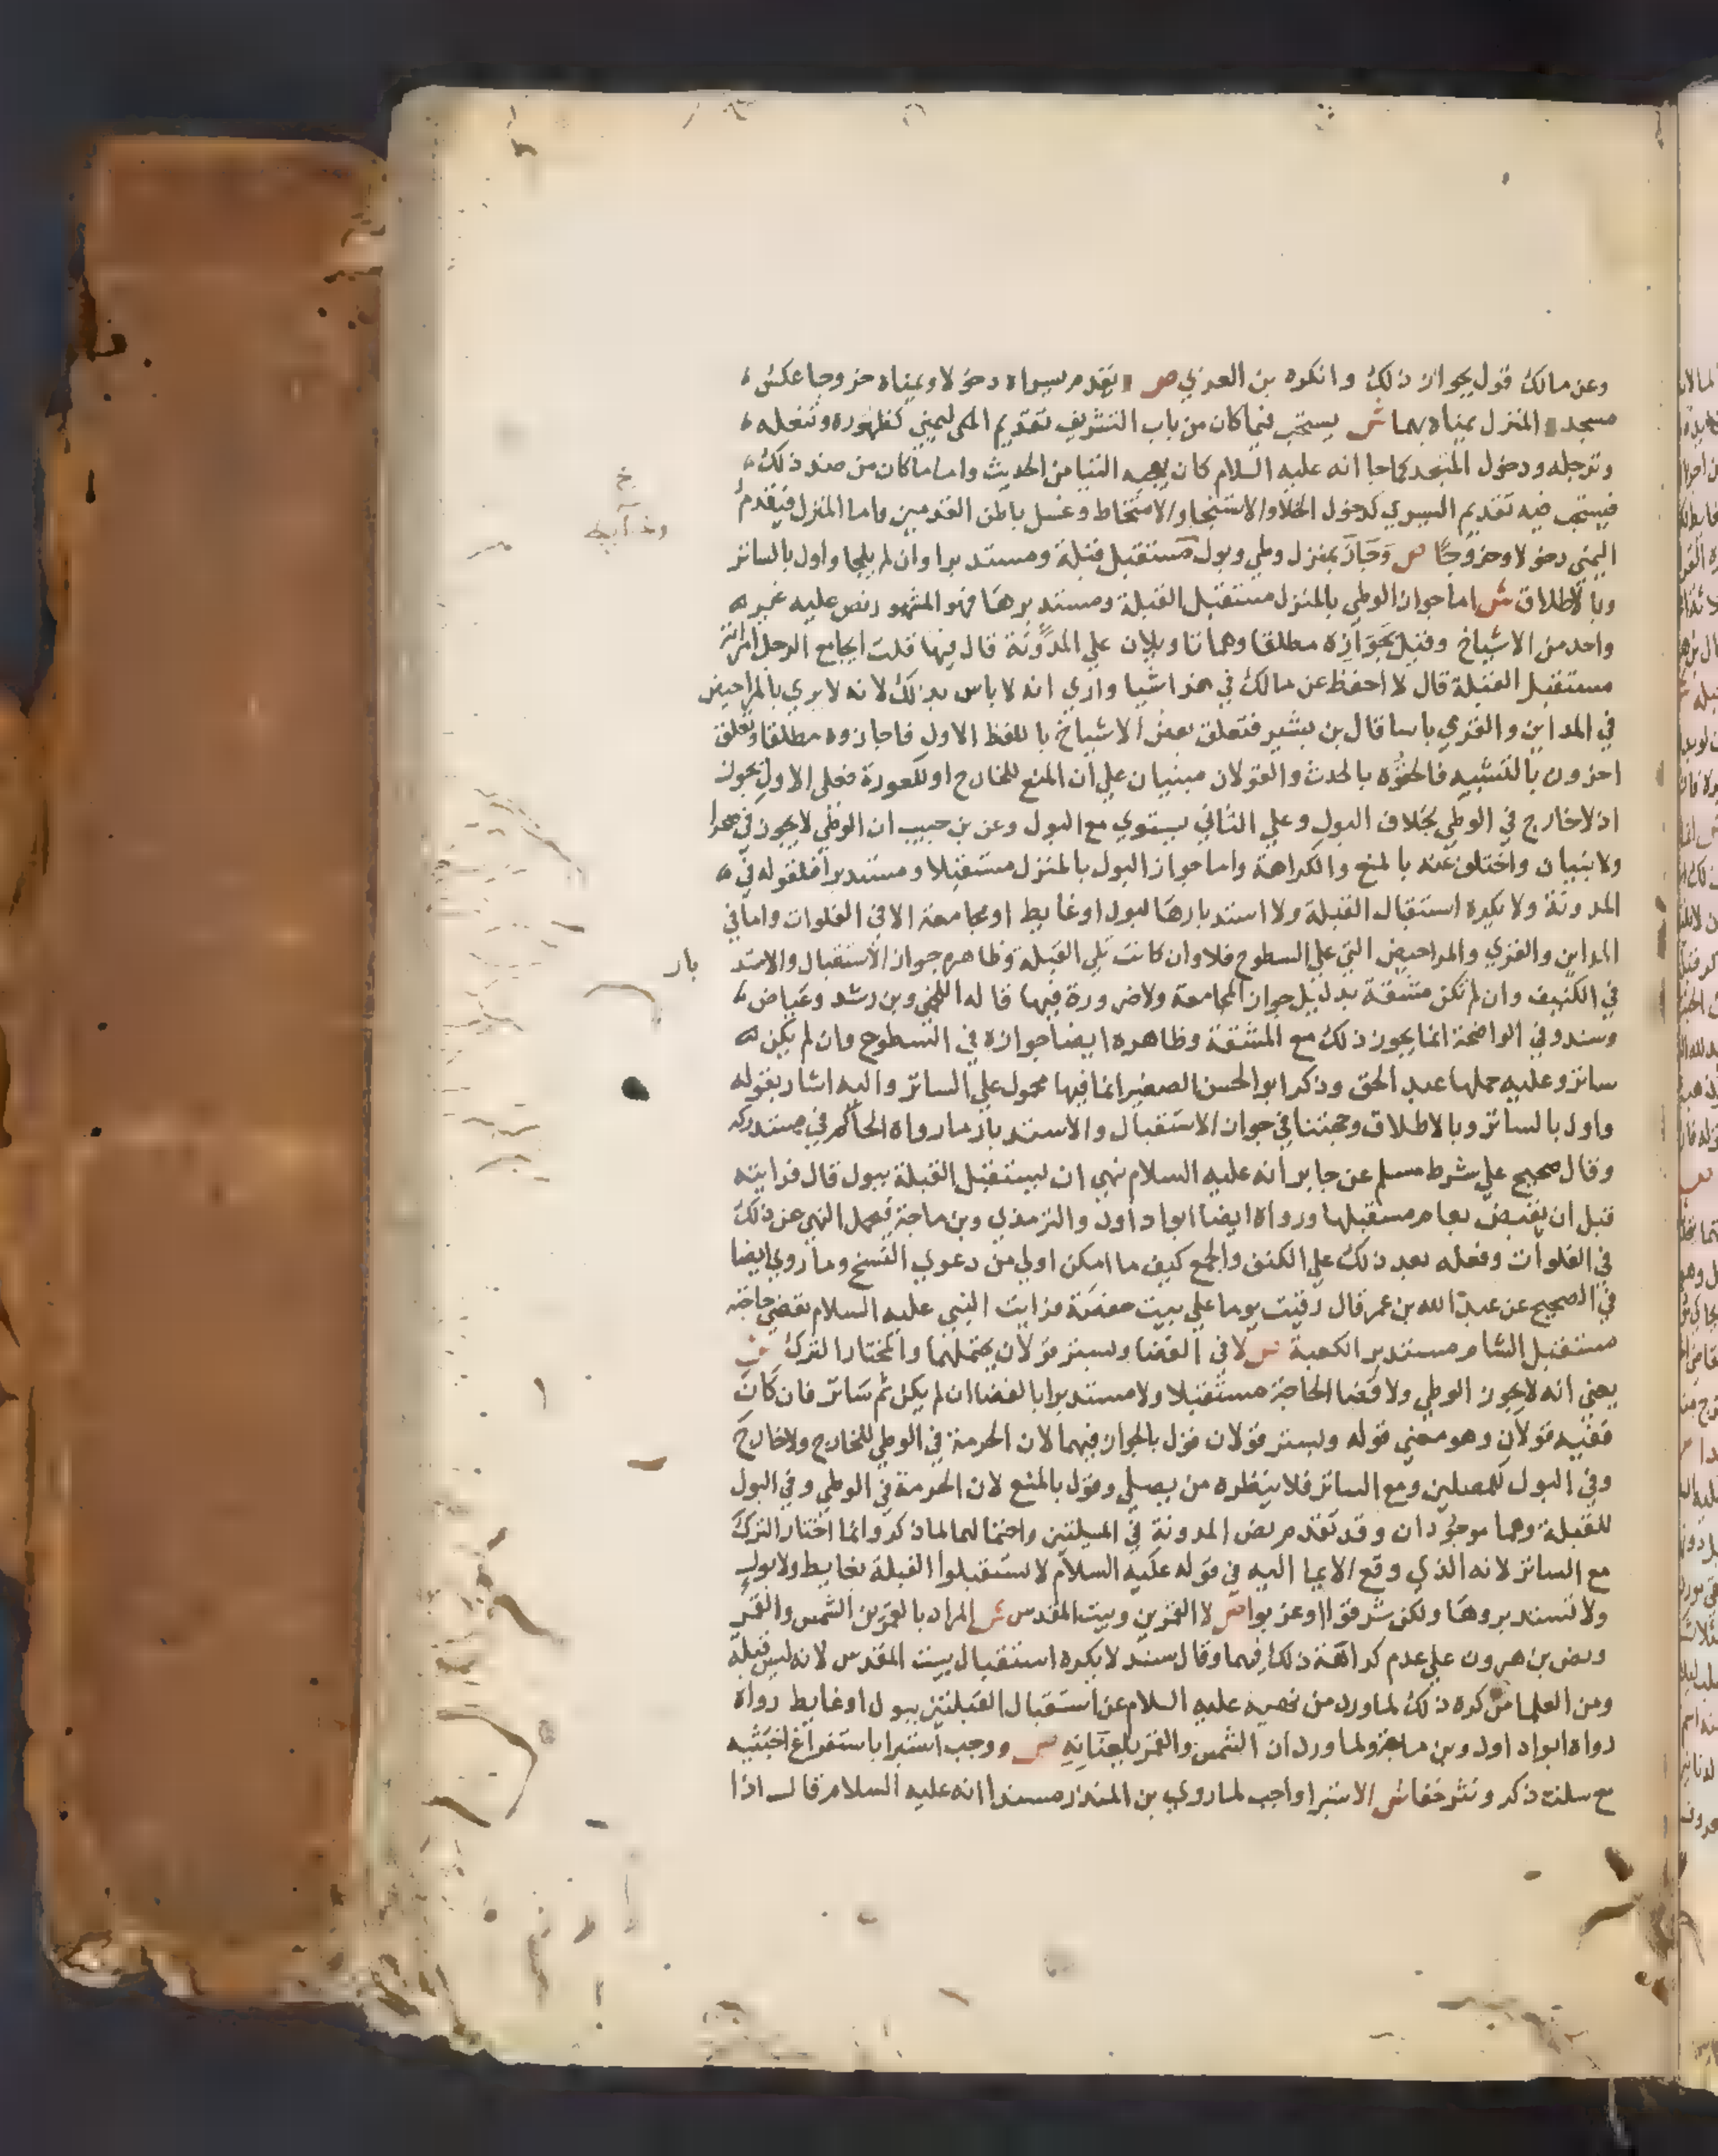 وعن مالك قول بجواز ذلك وانكره بن العربي ص وتقدم يسراه دخولا ويمناه خروجا عكس
مسجد والمنزل يمناه بهما ش يستحب فيما كان من باب التشريف تقديم اليمني كطهوره وتنعله
وترجله ودخول المسجد كما جا انه عليه السلام كان يعجبه التيامن الحديث واما ما كان من ضد ذلك
فيستحب فيه تقديم اليسري كدخول الخلا والاستنجا والامتخاط وغسل باطن القدمين واما المنزل فيقدم
اليمني دخولا وخروجا ص وجاز بمنزل وطي وبول مستقبل قبلة ومستدبرا وان لم يلجا واول بالساتر
وبالاطلاق ش اما جواز الوطي بالمنزل مستقبل القبلة ومستدبرها فهو المشهور نص عليه غير
واحد من الاشياخ وقيل بجوازه مطلقا وهما تاويلان علي المدونة قال فيها قلت ايجامع الرجل امراته
مستقبل القبلة قال لا احفظ عن مالك في هذا شيا واري انه لا باس بذلك لانه لا يري بالمراحيض
في المداين والقري باسا قال بن بشير فتعلق بعض الاشياخ باللفظ الاول فاجازوه مطلقا وتعلق
اخرون بالتشبيه فالحقوه بالحدث والقولان مبنيان علي ان المنع للخارج او للعورة فعلى الاول يجوز
اذ لا خارج في الوطي بخلاف البول وعلي الثاني يستوي مع البول وعن بن حبيب ان الوطي لا يجوز في صحرا
ولا بنيان واختلف عنه بالمنع والكراهة واما جواز البول بالمنزل مستقبلا ومستدبرا فلقوله في
المدونة ولا يكره استقبال القبلة ولا استدبارها لبول او غايط او مجامعة الا في الفلوات واما في
المداين والقري والمراحيض التي علي السطوح فلا وان كانت تلي القبلة وظاهره جواز الاستقبال والاستد بار
في الكنيف وان لم تكن مشقة بدليل جواز المجامعة ولا ضرورة فيها قاله اللخمي وبن رشد وعياض
وسند وفي الواضحة انما يجوز ذلك مع المشقة وظاهره ايضا جوازه في السطوح وان لم يكن له
ساتر وعليه حملها عبد الحق وذكر ابو الحسن الصغير انما فيها محمول علي الساتر واليه اشار بقوله
واول بالساتر وبالاطلاق وحجتنا في جواز الاستقبال والاستدبار ما رواه الحاكم في مستدركه
وقال صحيح علي شرط مسلم عن جابر انه عليه السلام نهي ان نستقبل القبلة ببول قال فرايته
قبل ان يقبض بعام مستقبلها ورواه ايضا ابو داود والترمذي وبن ماجة فيحمل النهي عن ذلك
في الفلوات وفعله بعد ذلك علي الكنف والجمع كيف ما امكن اولي من دعوي النسخ وما روي ايضا
في الصحيح عن عبد الله بن عمر قال رقيت يوما علي بيت حفصة فرايت النبي عليه السلام يقضي حاجته
مستقبل الشام مستدبر الكعبة ص لا في الفضا وبستر قولان يحتملهما والمختار الترك ش
يعني انه لا يجوز الوطي ولا قضا الحاجة مستقبلا ولا مستدبرا بالفضا ان لم يكن ثم ساتر فان كان
ففيه قولان وهو معني قوله وبستر قولان قول بالجواز فيهما لان الحرمة في الوطي للخارج ولا خارج
وفي البول للمصلين ومع الساتر فلا ينظره من يصلي وقول بالمنع لان الحرمة في الوطي وفي البول
للقبلة وهما موجودان وقد تقدم نص المدونة في المسيلتين واحتمالهما لما ذكر وانما اختار الترك
مع الساتر لانه الذي وقع الايما اليه في قوله عليه السلام لا تستقبلوا القبلة بغايط ولا بول
ولا تستدبروها ولكن شرقوا او غربوا ص لا القمرين وبيت المقدس ش المراد بالقمرين الشمس والقمر
ونص بن هرون علي عدم كراهة ذلك فيهما وقال سند لا يكره استقبال بيت المقدس لانه ليس قبلة
ومن العلما من كره ذلك لما ورد من نهيه عليه السلام عن استقبال القبلتين ببول او غايط رواه
رواه ابو داود وبن ماجة ولما ورد ان الشمس والقمر يلعنانه ص ووجب استبرا باستفراغ اخبثيه
مع سلت ذكر ونتر خفا ش الاستبرا واجب لما روي بن المنذر مسندا انه عليه السلام قال اذا